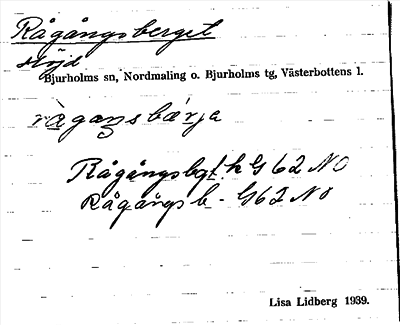 Rågångsberget
Höjd
Bjurholms sn, Nordmaling o. Bjurholms tg, Västerbottens l.
rågaŋsbærja
Rågångsbgt. h G 62 NO
Rågångsb - G62 NO
Lisa Lidberg 1939.